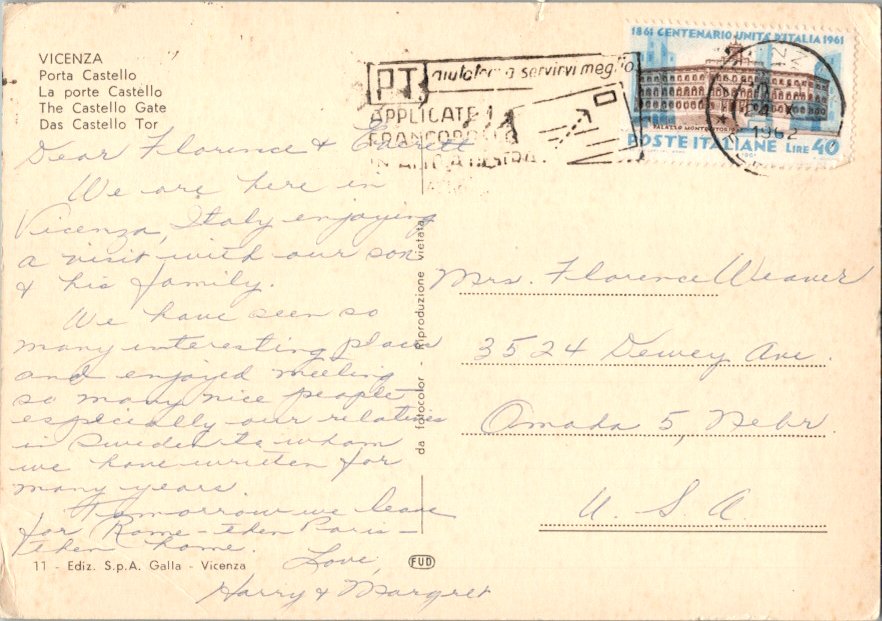 VICENZA
Porta Castello
La porte Castello
The Castello Gate
Das Castello Tor
1861 CENTENARIO UNITÀ D'ITALIA 1961
PALAZZO MONTECITORIO
POSTE ITALIANE LIRE 40
PT aiutateci a servirvi meglio
APPLICATE I
FRANCOBOLLI
IN ALTO A DESTRA
1962
Dear Florence &
We are here in
Vicenza, Italy enjoying
a visit with our son
& his family.
We have seen so
many interesting places
and enjoyed meeting
so many nice people
especially our relatives
in Sweden to whom
we have written for
many years.
Tomorrow we leave
for Rome - then Paris -
then home.
Love,
Harry & Margret
da fotocolor - Riproduzione vietata
Mrs. Florence Weaver
3524 Dewey Ave.
Omaha 5, Nebr.
U. S. A.
11 - Ediz. S.p.A. Galla - Vicenza
FUD